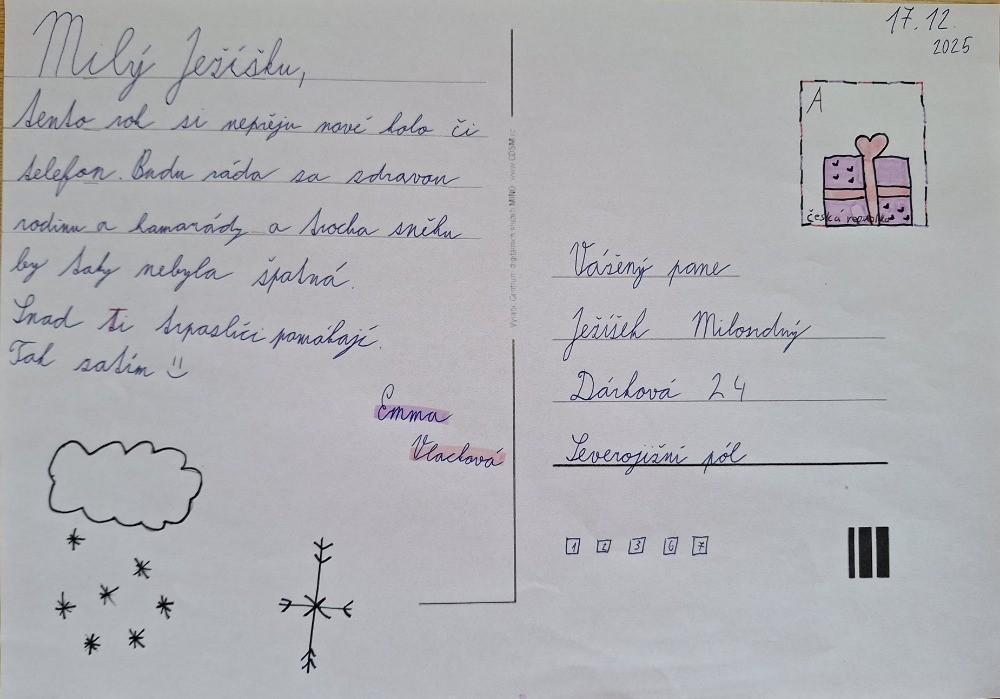 Milý Ježíšku,
tento rok si nepřeju nové kolo či
telefon. Budu ráda za zdravou
rodinu a kamarády a trocha sněhu
by taky nebyla špatná.
Snad Ti trpaslíci pomáhají.
Tak zatím
Emma
Vlachová
17.12.
2025
A
česká republika
Vážený pane
Ježíšek Milosrdný
Dárková 24
Severojižní pól
1 2 3 6 7
Vyrobil: Centrum digitálních služeb MIND, www.CDSM.cz